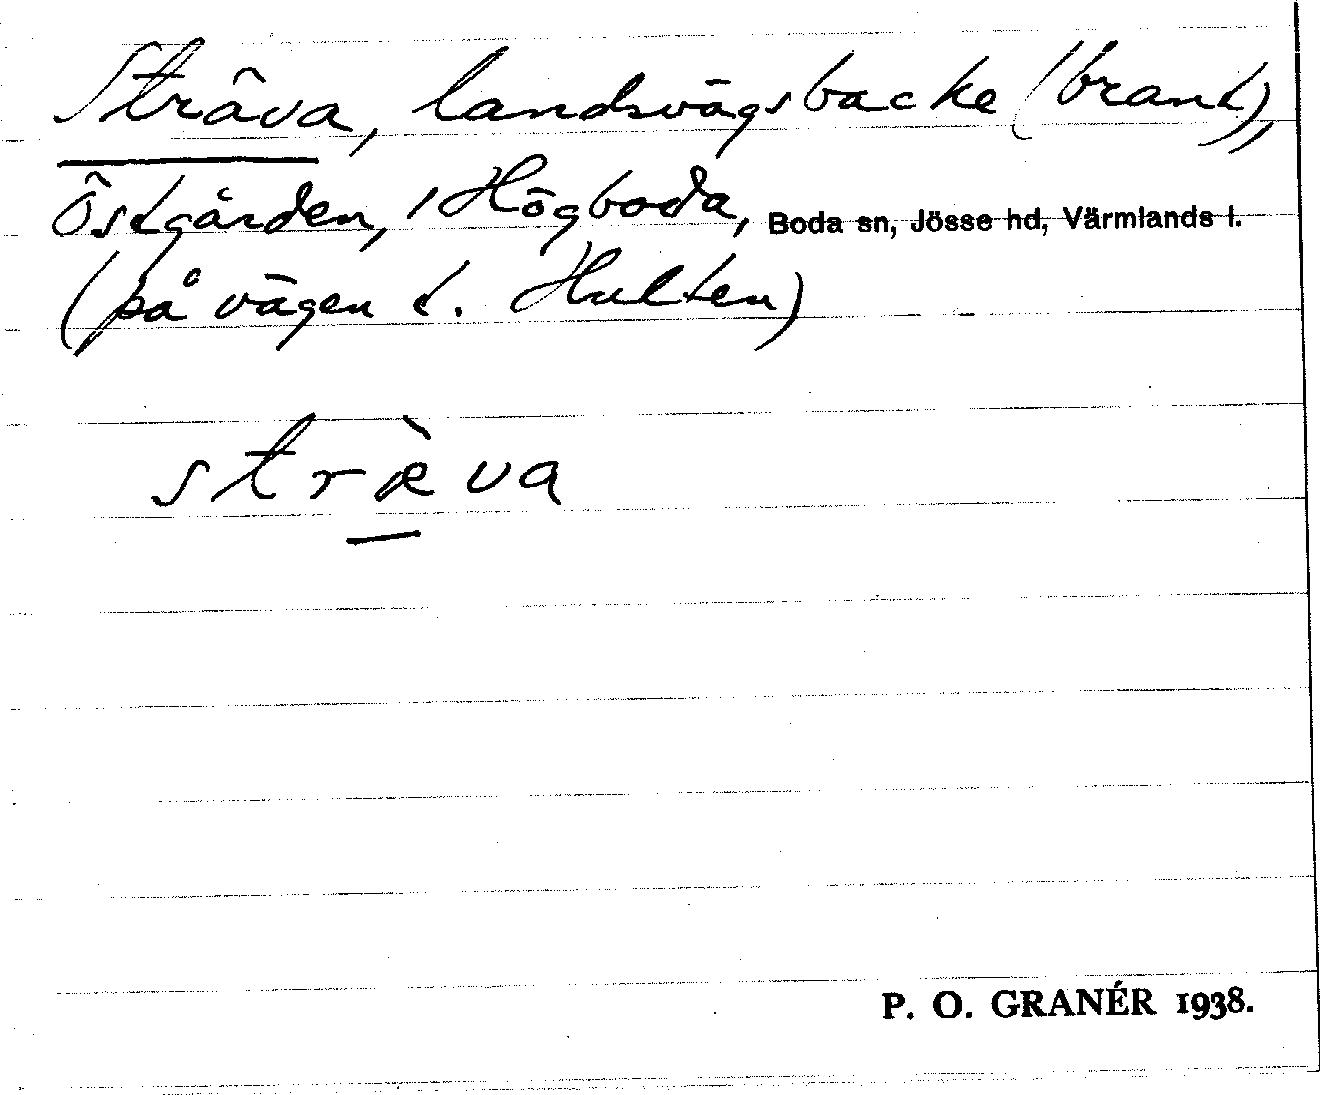 Sträva, landsvägsbacke (brant),
Östgården, 1 Högboda, Boda sn, Jösse hd, Värmlands l.
(på vägen t. Hulten)
stræ̀va
P. O. GRANÉR 1938.